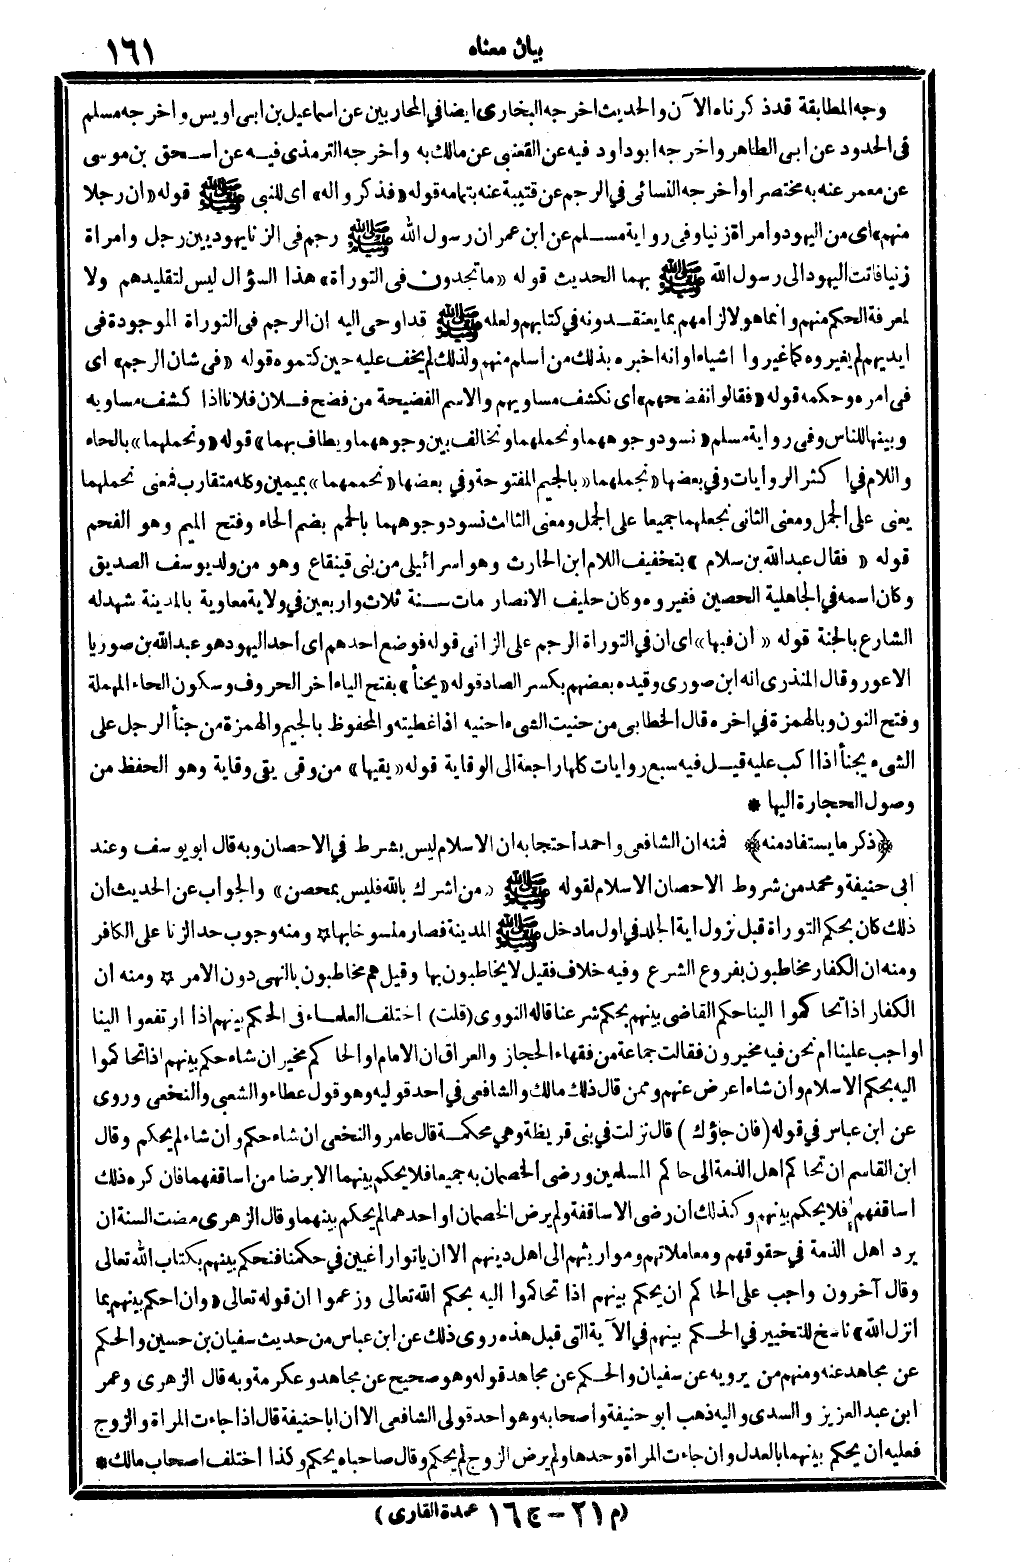 بيان معناه
١٦١
وجه المطابقة قد ذكرناه الآن والحديث اخرجه البخارى ايضا فى المحاربين عن اسماعيل بن ابى اويس واخرجه مسلم
فى الحدود عن ابى الطاهر واخرجه ابو داود فيه عن القعنبى عن مالك به وأخرجه الترمذى فيه عن اسحق بن موسى
عن معمر عنه به مختصرا وأخرجه النسائى فى الرجم عن قتيبة عنه بتمامه قوله «فذكروا له» اى للنبى ﷺ قوله «ان رجلا
منهم» اى من اليهود وامرأة زنيا وفى رواية مسلم عن ابن عمر ان رسول الله ﷺ رجم فى الزنا يهوديين رجل وامرأة
زنيا فاتت اليهود الى رسول الله ﷺ بهما الحديث قوله «ما تجدون فى التوراة» هذا السؤال ليس لتقليدهم ولا
لمعرفة الحكم منهم وانما هو لالزامهم بما يعتقدونه فى كتابهم ولعله ﷺ قد اوحى اليه ان الرجم فى التوراة الموجودة فى
ايديهم لم يغيروه كما غيروا اشياء او انه اخبره بذلك من أسلم منهم ولذلك لم يخف عليه حين كتموه قوله «فى شان الرجم» اى
فى امره وحكمه قوله «فقالوا نفضحهم» اى نكشف مساويهم والاسم الفضيحة من فضح فلان فلانا اذا كشف مساويه
وبينها للناس وفى رواية مسلم «نسود وجوههما ونحملهما ونخالف بين وجوههما ويطاف بهما» قوله «ونحملهما» بالحاء
واللام فى اكثر الروايات وفى بعضها «نجملهما» بالجيم المفتوحة وفى بعضها «نحممهما» بميمين وكله متقارب فمعنى نحملهما
يعنى على الجمل ومعنى الثانى نجعلهما جميعا على الجمل ومعنى الثالث نسود وجوههما بالحمم بضم الحاء وفتح الميم وهو الفحم
قوله «فقال عبد الله بن سلام» بتخفيف اللام ابن الحارث وهو اسرائيلى من بنى قينقاع وهو من ولد يوسف الصديق
وكان اسمه فى الجاهلية الحصين فغيروه وكان حليف الانصار مات سنة ثلاث واربعين فى ولاية معاوية بالمدينة شهد له
الشارع بالجنة قوله «ان فيها» اى ان فى التوراة الرجم على الزانى قوله فوضع احدهم اى احد اليهود هو عبد الله بن صوريا
الاعور وقال المنذرى انه ابن صورى وقيده بعضهم بكسر الصاد قوله «يحنأ» بفتح الياء اخر الحروف وسكون الحاء المهملة
وفتح النون وبالهمزة فى اخره قال الخطابى من حنيت الشىء احنيه اذا غطيته والمحفوظ بالجيم والهمزة من جنأ الرجل على
الشىء يجنأ اذا اكب عليه قيل فيه سبع روايات كلها راجعة الى الوقاية قوله «يقيها» من وقى يقى وقاية وهو الحفظ من
وصول الحجارة اليها *
﴿ذكر ما يستفاد منه﴾ فمنه ان الشافعى واحمد احتجا به ان الاسلام ليس بشرط فى الاحصان وبه قال ابو يوسف وعند
ابى حنيفة ومحمد من شروط الاحصان الاسلام لقوله ﷺ «من اشرك بالله فليس بمحصن» والجواب عن الحديث أن
ذلك كان بحكم التوراة قبل نزول آية الجلد فى اول ما دخل ﷺ المدينة فصار منسوخا بها ☆ ومنه وجوب حد الزنا على الكافر
ومنه ان الكفار مخاطبون بفروع الشرع وفيه خلاف فقيل لا يخاطبون بها وقيل هم مخاطبون بالنهى دون الامر ☆ ومنه ان
الكفار اذا تحاكموا الينا حكم القاضى بينهم بحكم شرعنا قاله النووى (قلت) اختلف العلماء فى الحكم بينهم اذا ارتفعوا الينا
اواجب علينا ام نحن فيه مخيرون فقالت جماعة من فقهاء الحجاز والعراق ان الامام او الحاكم مخير ان شاء حكم بينهم اذا تحاكموا
اليه بحكم الاسلام وأن شاء اعرض عنهم وممن قال ذلك مالك والشافعى فى احد قوليه وهو قول عطاء والشعبى والنخعى وروى
عن ابن عباس فى قوله (فان جاؤك) قال نزلت فى بنى قريظة وهى محكمة قال عامر والنخعى ان شاء حكم وان شاء لم يحكم وقال
ابن القاسم ان تحاكم اهل الذمة الى حاكم المسلمين ورضى الخصمان به جميعا فلا يحكم بينهما الا برضا من اساقفهما فان كره ذلك
اساقفهم فلا يحكم بينهم وكذلك ان رضى الاساقفة ولم يرض الخصمان او احدهما لم يحكم بينهما وقال الزهرى مضت السنة ان
يرد اهل الذمة فى حقوقهم ومعاملاتهم ومواريثهم الى اهل دينهم الا ان ياتوا راغبين فى حكمنا فنحكم بينهم بكتاب الله تعالى
وقال آخرون واجب على الحاكم ان يحكم بينهم اذا تحاكموا اليه بحكم الله تعالى وزعموا ان قوله تعالى «وان احكم بينهم بما
انزل الله» ناسخ للتخيير فى الحكم بينهم فى الآية التى قبل هذه روى ذلك عن ابن عباس من حديث سفيان بن حسين والحكم
عن مجاهد عنه ومنهم من يرويه عن سفيان والحكم عن مجاهد قوله وهو صحيح عن مجاهد وعكرمة وبه قال الزهرى وعمر
ابن عبد العزيز والسدى واليه ذهب ابو حنيفة واصحابه وهو احد قولى الشافعى الا ان ابا حنيفة قال اذا جاءت المرأة والزوج
فعليه ان يحكم بينهما بالعدل وان جاءت المرأة وحدها ولم يرض الزوج لم يحكم وقال صاحباه يحكم وكذا اختلف اصحاب مالك *
(م ٢١ - ج ١٦ عمدة القارى)